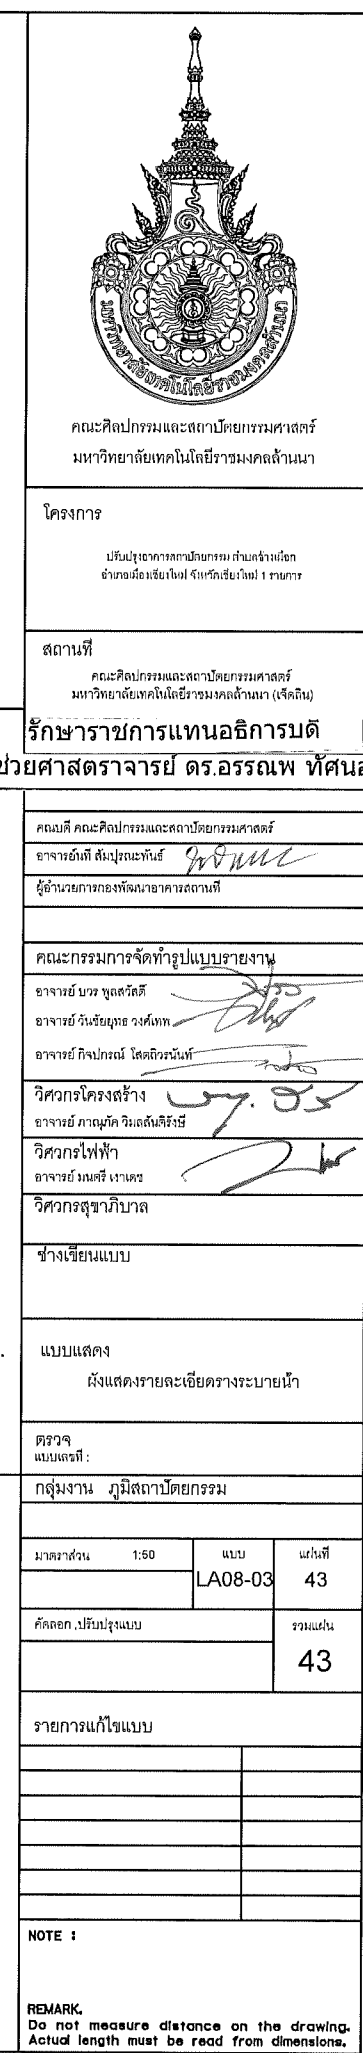 มหาวิทยาลัยเทคโนโลยีราชมงคลล้านนา
คณะศิลปกรรมและสถาปัตยกรรมศาสตร์
มหาวิทยาลัยเทคโนโลยีราชมงคลล้านนา
โครงการ
ปรับปรุงอาคารสถาปัตยกรรม ตำบลช้างเผือก
อำเภอเมืองเชียงใหม่ จังหวัดเชียงใหม่ 1 รายการ
สถานที่
คณะศิลปกรรมและสถาปัตยกรรมศาสตร์
มหาวิทยาลัยเทคโนโลยีราชมงคลล้านนา (เจ็ดลิน)
รักษาราชการแทนอธิการบดี
ช่วยศาสตราจารย์ ดร.อรรณพ ทัศนอ
คณบดี คณะศิลปกรรมและสถาปัตยกรรมศาสตร์
อาจารย์นที สัมปุรณะพันธ์
ผู้อำนวยการกองพัฒนาอาคารสถานที่
คณะกรรมการจัดทำรูปแบบรายงาน
อาจารย์ บวร พูลสวัสดิ์
อาจารย์ วันชัยยุทธ วงศ์เทพ
อาจารย์ กิจปกรณ์ โสตถิวรนันท์
วิศวกรโครงสร้าง
อาจารย์ ภาณุภัค วิมลสันติรังษี
วิศวกรไฟฟ้า
อาจารย์ มนตรี เงาเดช
วิศวกรสุขาภิบาล
ช่างเขียนแบบ
แบบแสดง
ผังแสดงรายละเอียดรางระบายน้ำ
ตรวจ
แบบเลขที่ :
กลุ่มงาน ภูมิสถาปัตยกรรม
มาตราส่วน 1:50 แบบ แผ่นที่
LA08-03 43
คัดลอก ,ปรับปรุงแบบ รวมแผ่น
43
รายการแก้ไขแบบ
NOTE :
REMARK.
Do not measure distance on the drawing.
Actual length must be read from dimensions.